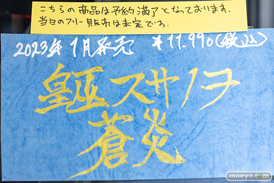 こちらの商品は予約満了となっております。
当日のフリー販売は未定です。
2023年1月発売 ¥11,990(税込)
皇巫スサノヲ
蒼炎